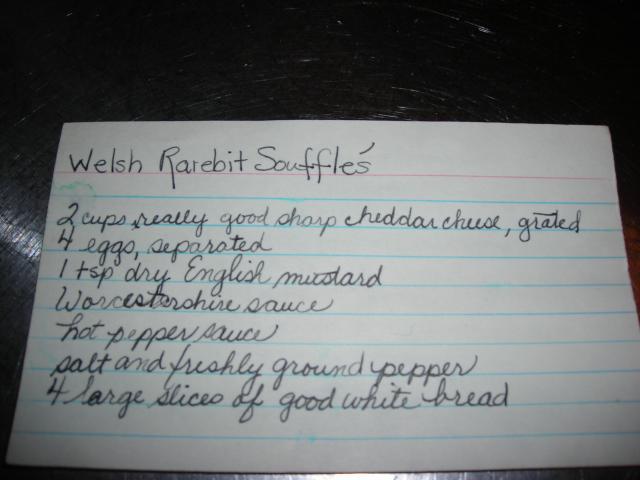 Welsh Rarebit Soufflés
2 cups really good sharp cheddar cheese, grated
4 eggs, separated
1 tsp dry English mustard
Worcestershire sauce
hot pepper sauce
salt and freshly ground pepper
4 large slices of good white bread